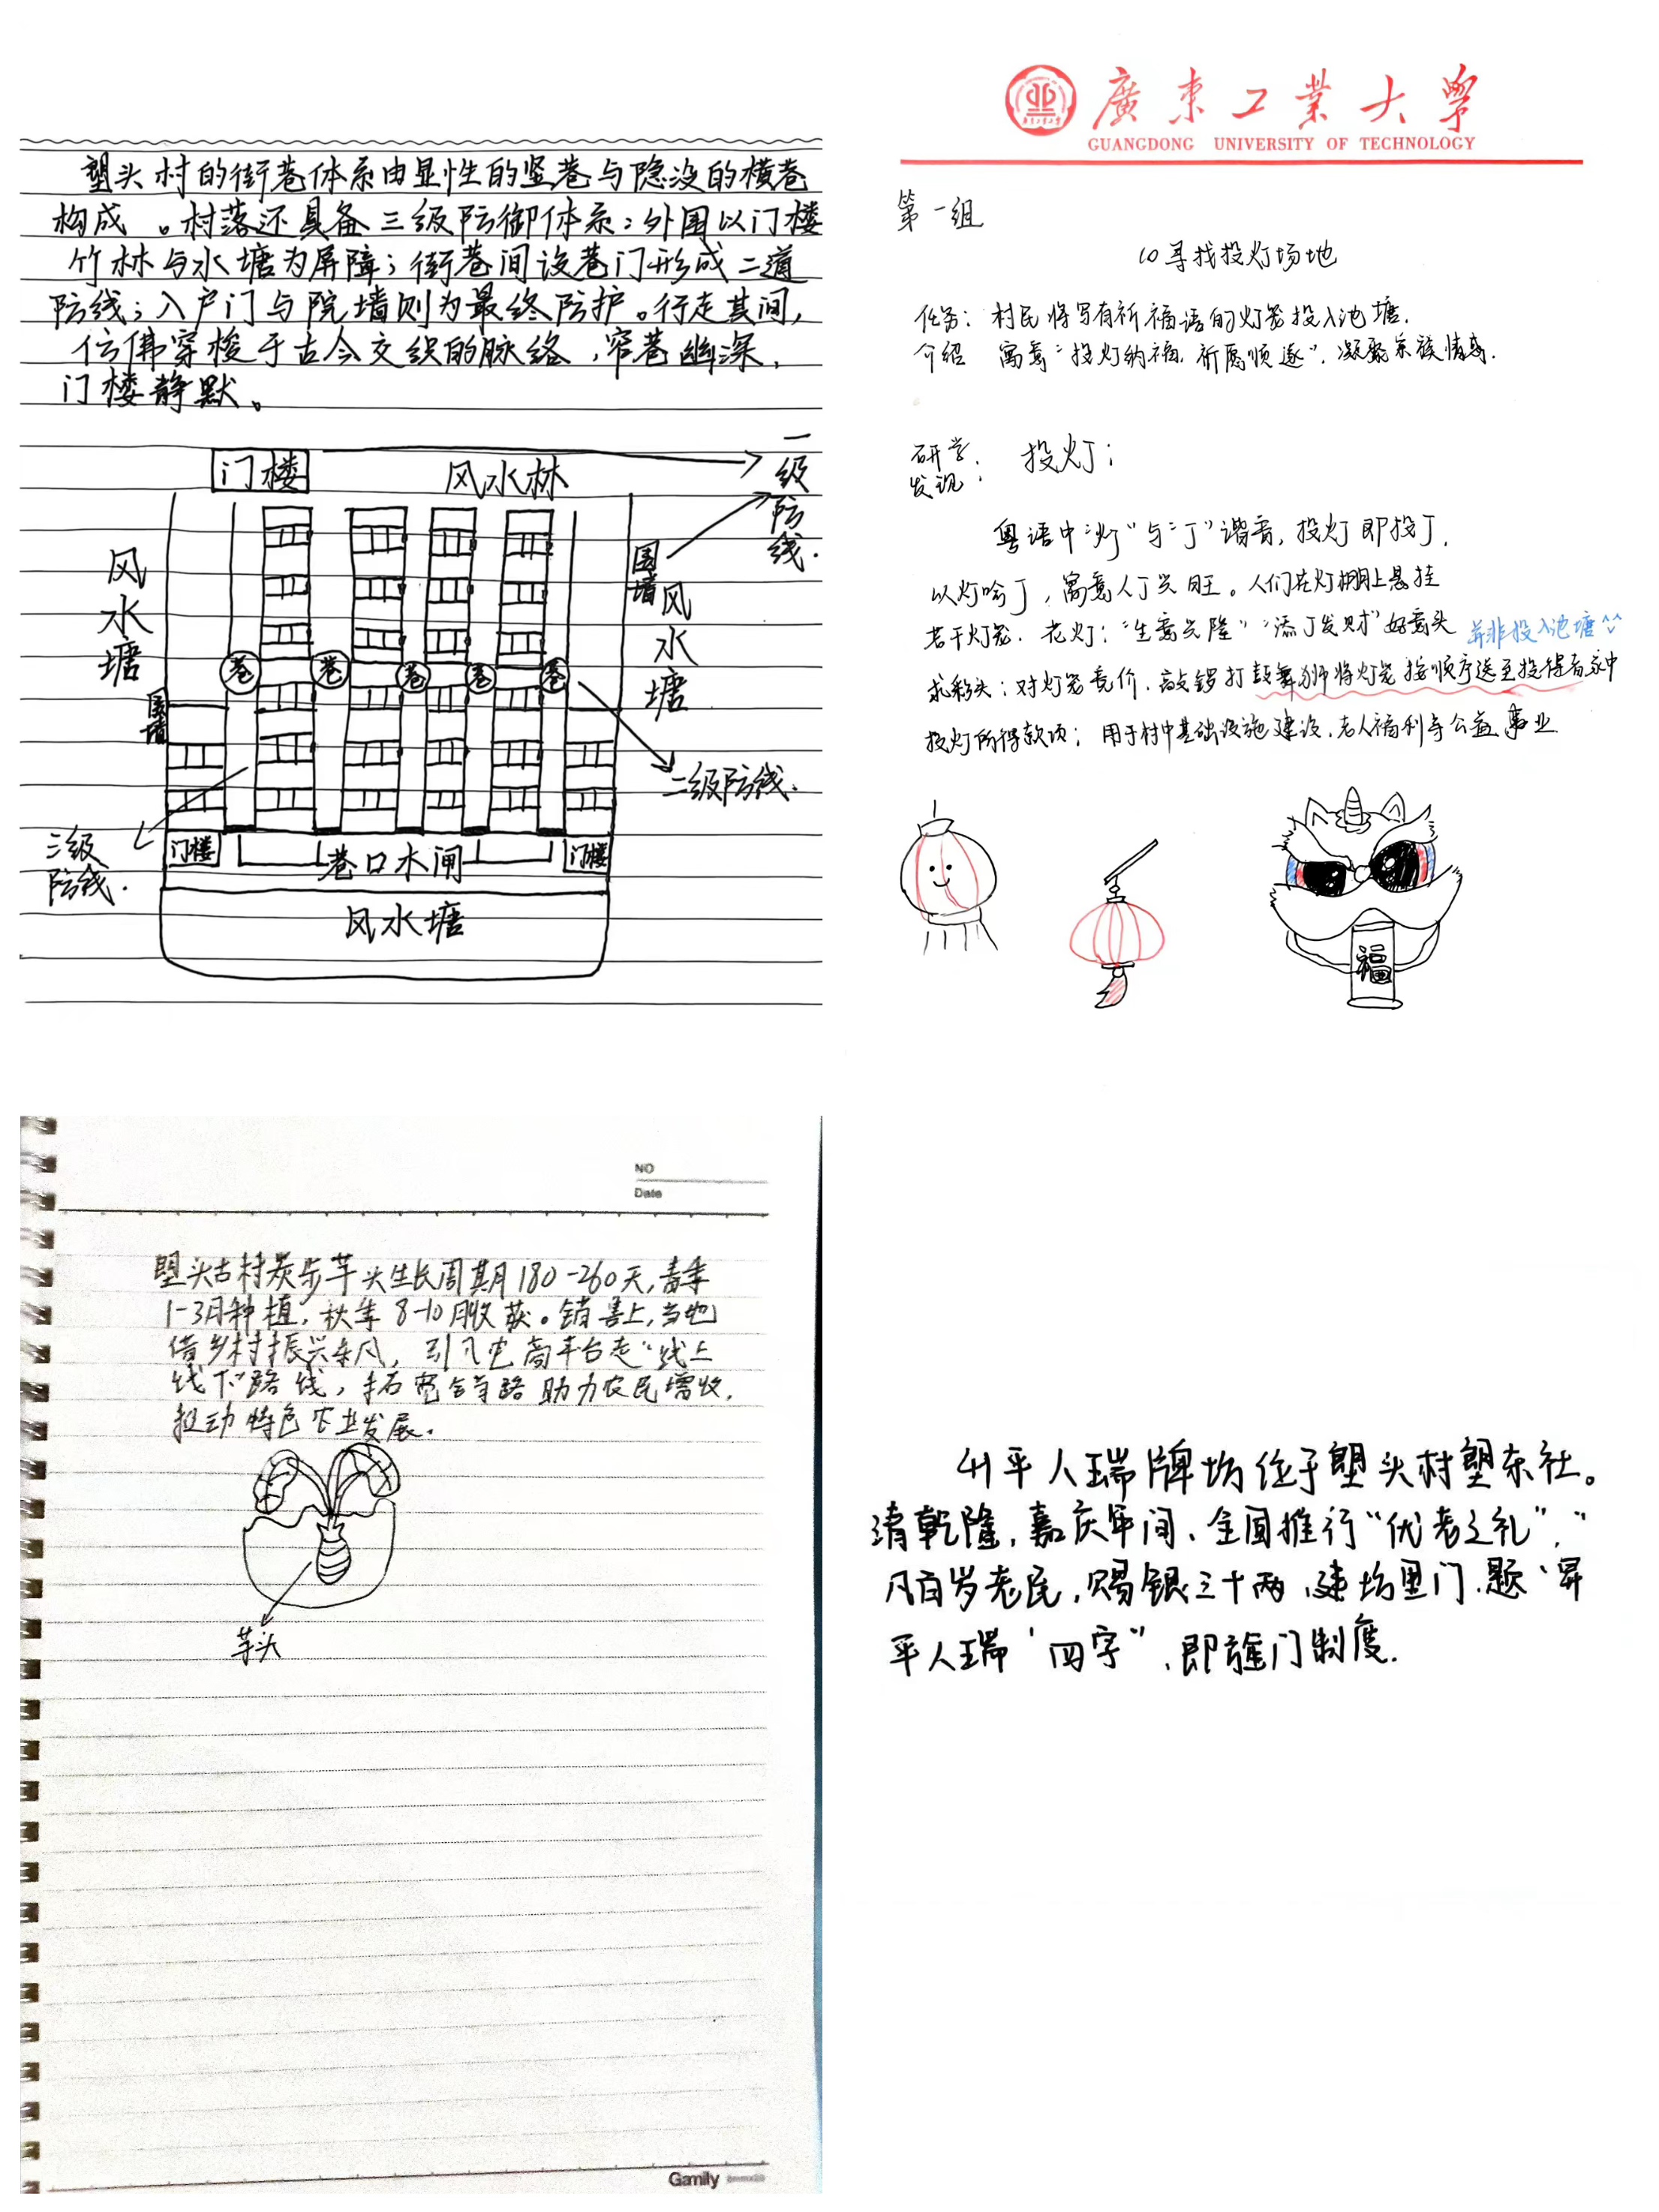 塱头村的街巷体系由显性的竖巷与隐没的横巷
构成。村落还具备三级防御体系：外围以门楼
竹林与水塘为屏障；街巷间设巷门形成二道
防线；入户门与院墙则为最终防护。行走其间，
仿佛穿梭于古今交织的脉络，窄巷幽深，
门楼静默。
门楼
风水林
一级防线.
风水塘
围墙
风水塘
巷 巷 巷 巷 巷
围墙
二级防线.
三级防线.
门楼
巷口水闸
门楼
风水塘
廣東工業大學
GUANGDONG UNIVERSITY OF TECHNOLOGY
第一组
10寻找投灯场地
任务：村民将写有祈福语的灯笼投入池塘.
介绍 寓意“投灯纳福，祈愿顺遂”，凝聚宗族情感.
研学发现： 投灯：
粤语中“灯”与“丁”谐音，投灯即投丁，
以灯喻丁，寓意人丁兴旺。人们在灯棚上悬挂
若干灯笼. 花灯：“生意兴隆”“添丁发财”好意头 并非投入池塘
求彩头：对灯笼竞价，敲锣打鼓舞狮将灯笼按顺序送至投得者家中
投灯所得款项：用于村中基础设施建设、老人福利等公益事业
福
NO
Date
塱头古村炭步芋头生长周期180-260天，春季
1-3月种植，秋季8-10月收获。销售上，当地
借乡村振兴东风，引入电商平台走“线上
线下”路线，拓宽销路助力农民增收，
拉动特色农业发展.
芋头
Gamily
升平人瑞牌坊位于塱头村塱东社。
清乾隆，嘉庆年间、全国推行“优老之礼”，“
凡百岁老民，赐银三十两，建坊里门，题‘昇
平人瑞’四字”，即旌门制度.